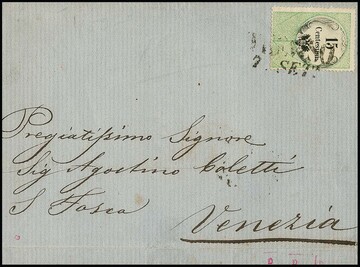 15
Centesimi
7. SET.
Pregiatissimo Signore
Sig Agostino Coletti
S Fosca
Venezia